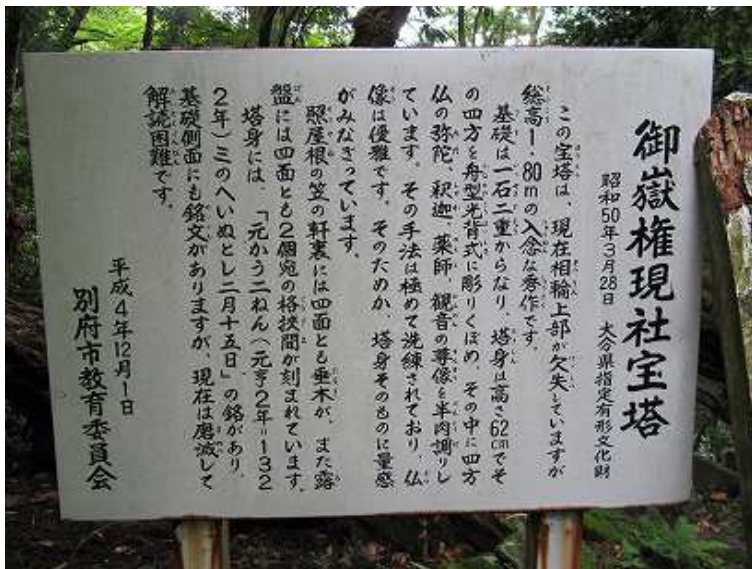 御嶽権現社宝塔
昭和50年3月28日 大分県指定有形文化財
この宝塔は、現在相輪上部が欠失していますが
総高1.80mの入念な秀作です。
基礎は一石二重からなり、塔身は高さ62cmでそ
の四方を舟型光背式に彫りくぼめ、その中に四方
仏の弥陀、釈迦、薬師、観音の尊像を半肉調りし
ています。その手法は極めて洗練されており、仏
像は優雅です。そのためか、塔身そのものに量感
がみなぎっています。
照屋根の笠の軒裏には四面とも垂木が、また露
盤には四面とも2個宛の格挾間が刻まれています。
塔身には、「元かう二ねん(元亨2年=132
2年)ミのへいぬとし二月十五日」の銘があり、
基礎側面にも銘文がありますが、現在は磨滅して
解読困難です。
平成4年12月1日
別府市教育委員会